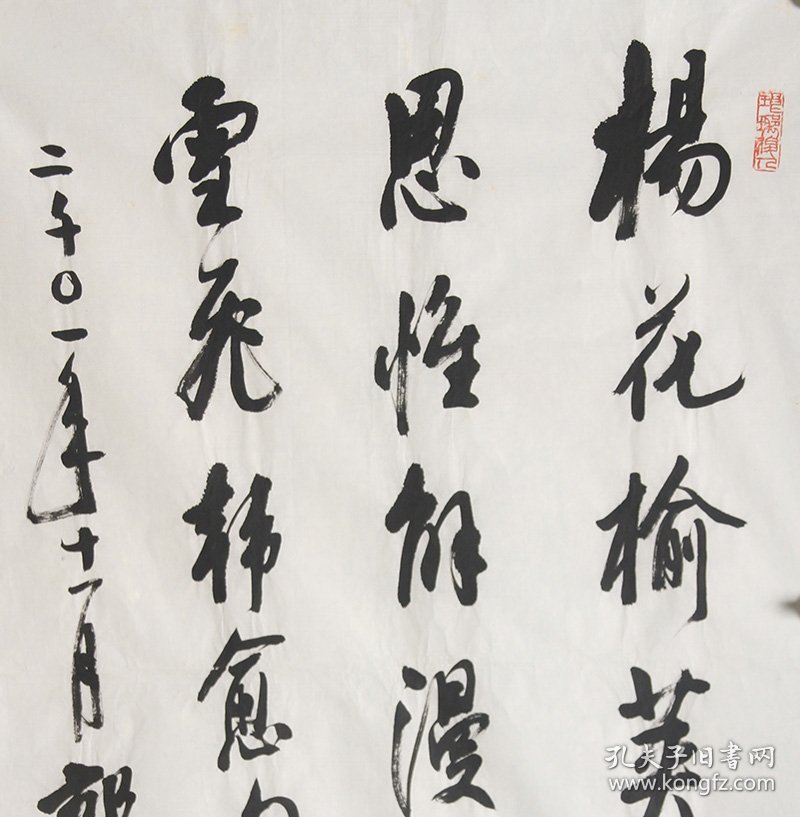 楊花榆莢
思惟解漫
雪飛韓愈
二千〇一年十一月
孔夫子旧书网
www.kongfz.com